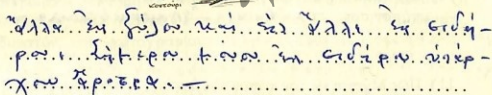 ἄλλα ἐκ ξύλου καὶ ἐὰν ἄλλι ἐκ σιδή-
ρου. Σήμερον μόνον ἐκ σιδήρου ὑπάρ-
χουν ἄροτρα. —